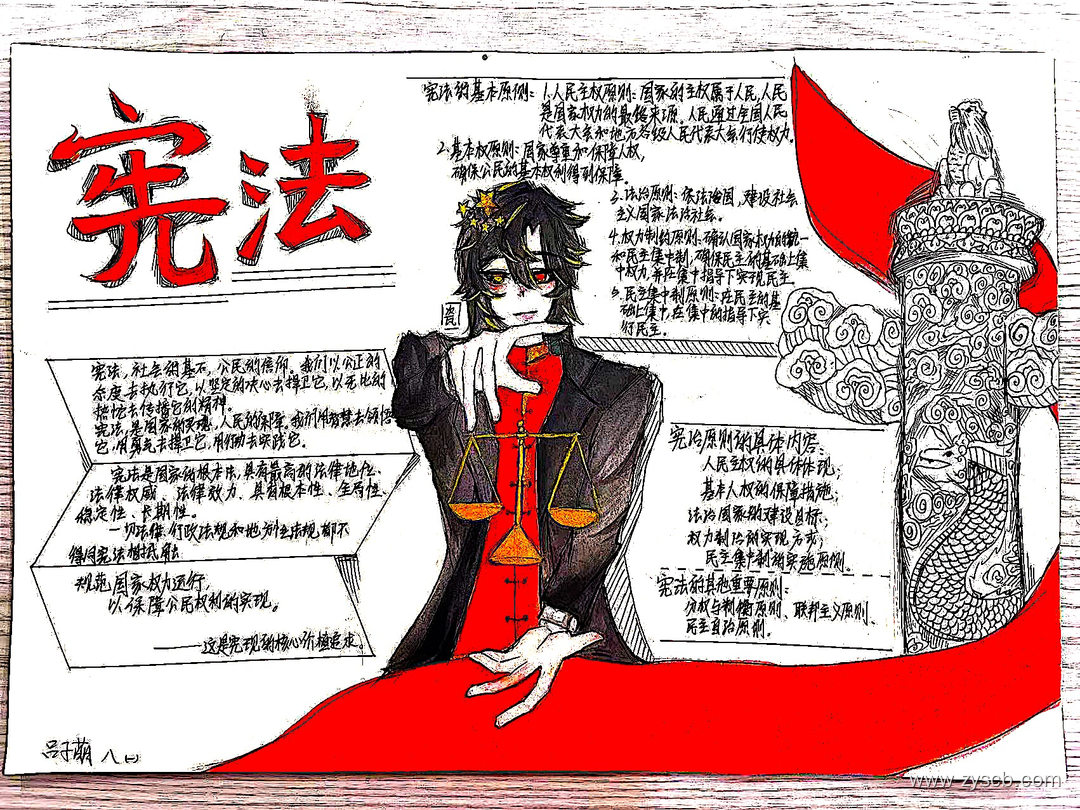 宪法
宪法的基本原则：1.人民主权原则：国家的主权属于人民，人民
是国家权力的最终来源。人民通过全国人民
代表大会和地方各级人民代表大会行使权力。
2.基本权原则：国家尊重和保障人权，
确保公民的基本权利得到保障。
3.法治原则：依法治国，建设社会
主义国家法治社会。
4.权力制约原则：确认国家权力的统一
和民主集中制，确保民主的基础上集
中权力，并在集中指导下实现民主。
5.民主集中制原则：在民主的基
础上集中，在集中的指导下实
行民主。
宪法，社会的基石，公民的信仰。我们以公正的
态度去执行它，以坚定的决心去捍卫它，以无比的
热忱去传播它的精神。
宪法，是国家的灵魂，人民的保障。我们用智慧去领悟
它，用勇气去捍卫它，用行动去实践它。
宪法是国家的根本法，具有最高的法律地位、
法律权威、法律效力，具有根本性、全局性、
稳定性、长期性。
一切法律、行政法规和地方性法规都不
得同宪法相抵触
规范国家权力运行，
以保障公民权利的实现。
——这是宪现的核心价值追求。
宪治原则的具体内容：
人民主权的具体体现；
基本人权的保障措施；
法治国家的建设目标；
权力制约的实现方式；
民主集中制的实施原则。
宪法的其他重要原则：
分权与制衡原则、联邦主义原则、
民主自治原则。
吕子萌 八(二)
www.zyscb.com